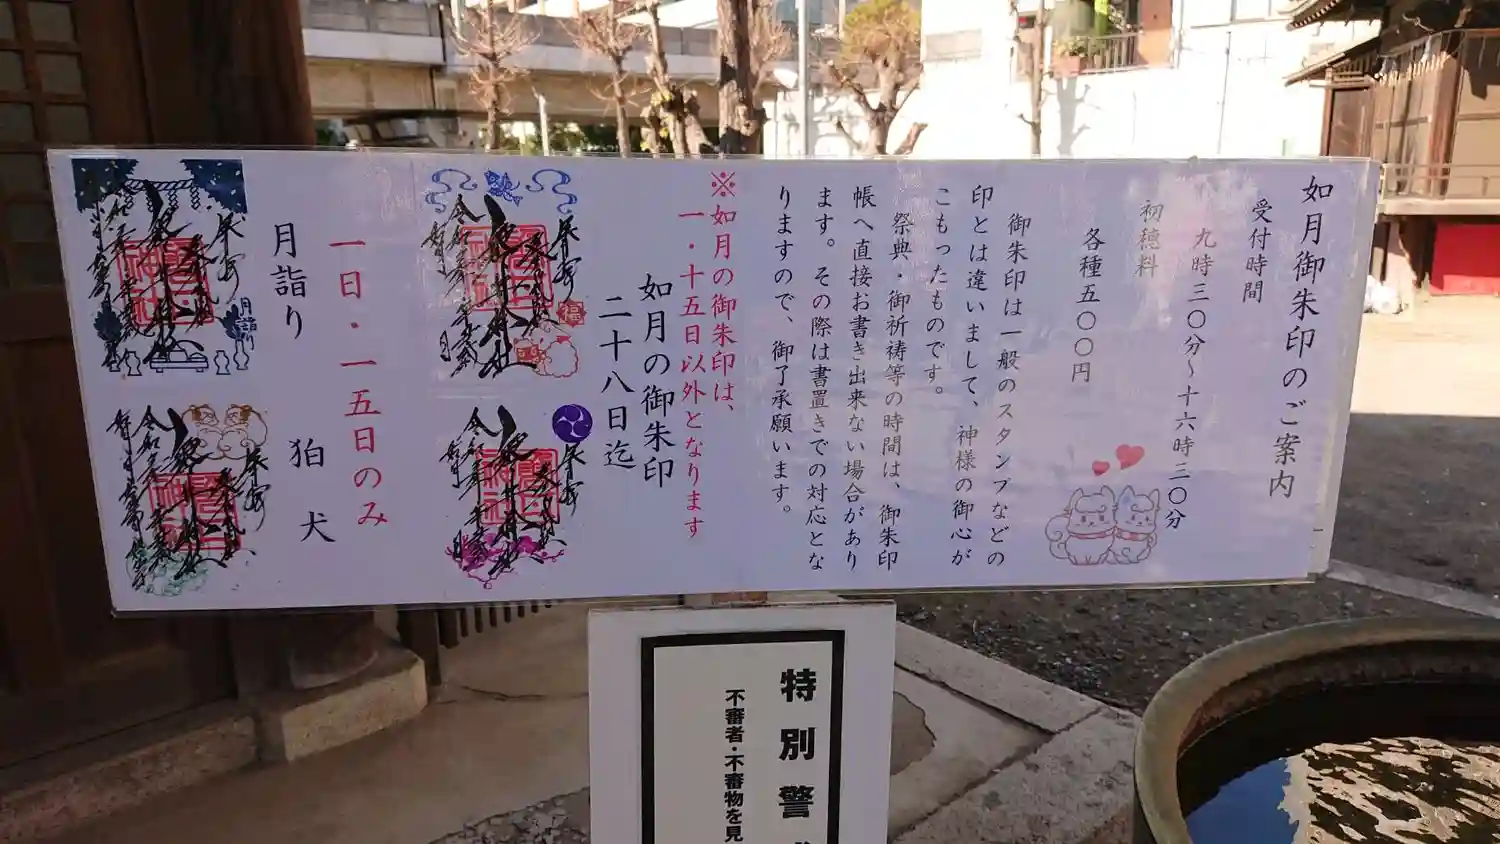 如月御朱印のご案内
受付時間
九時三〇分～十六時三〇分
初穂料
各種五〇〇円
御朱印は一般のスタンプなどの
印とは違いまして、神様の御心が
こもったものです。
祭典・御祈祷等の時間は、御朱印
帳へ直接お書き出来ない場合があり
ます。その際は書置きでの対応とな
りますので、御了承願います。
※如月の御朱印は、
一・十五日以外となります
如月の御朱印
二十八日迄
一日・一五日のみ
月詣り
狛犬
月詣り
福
特別警
不審者・不審物を見